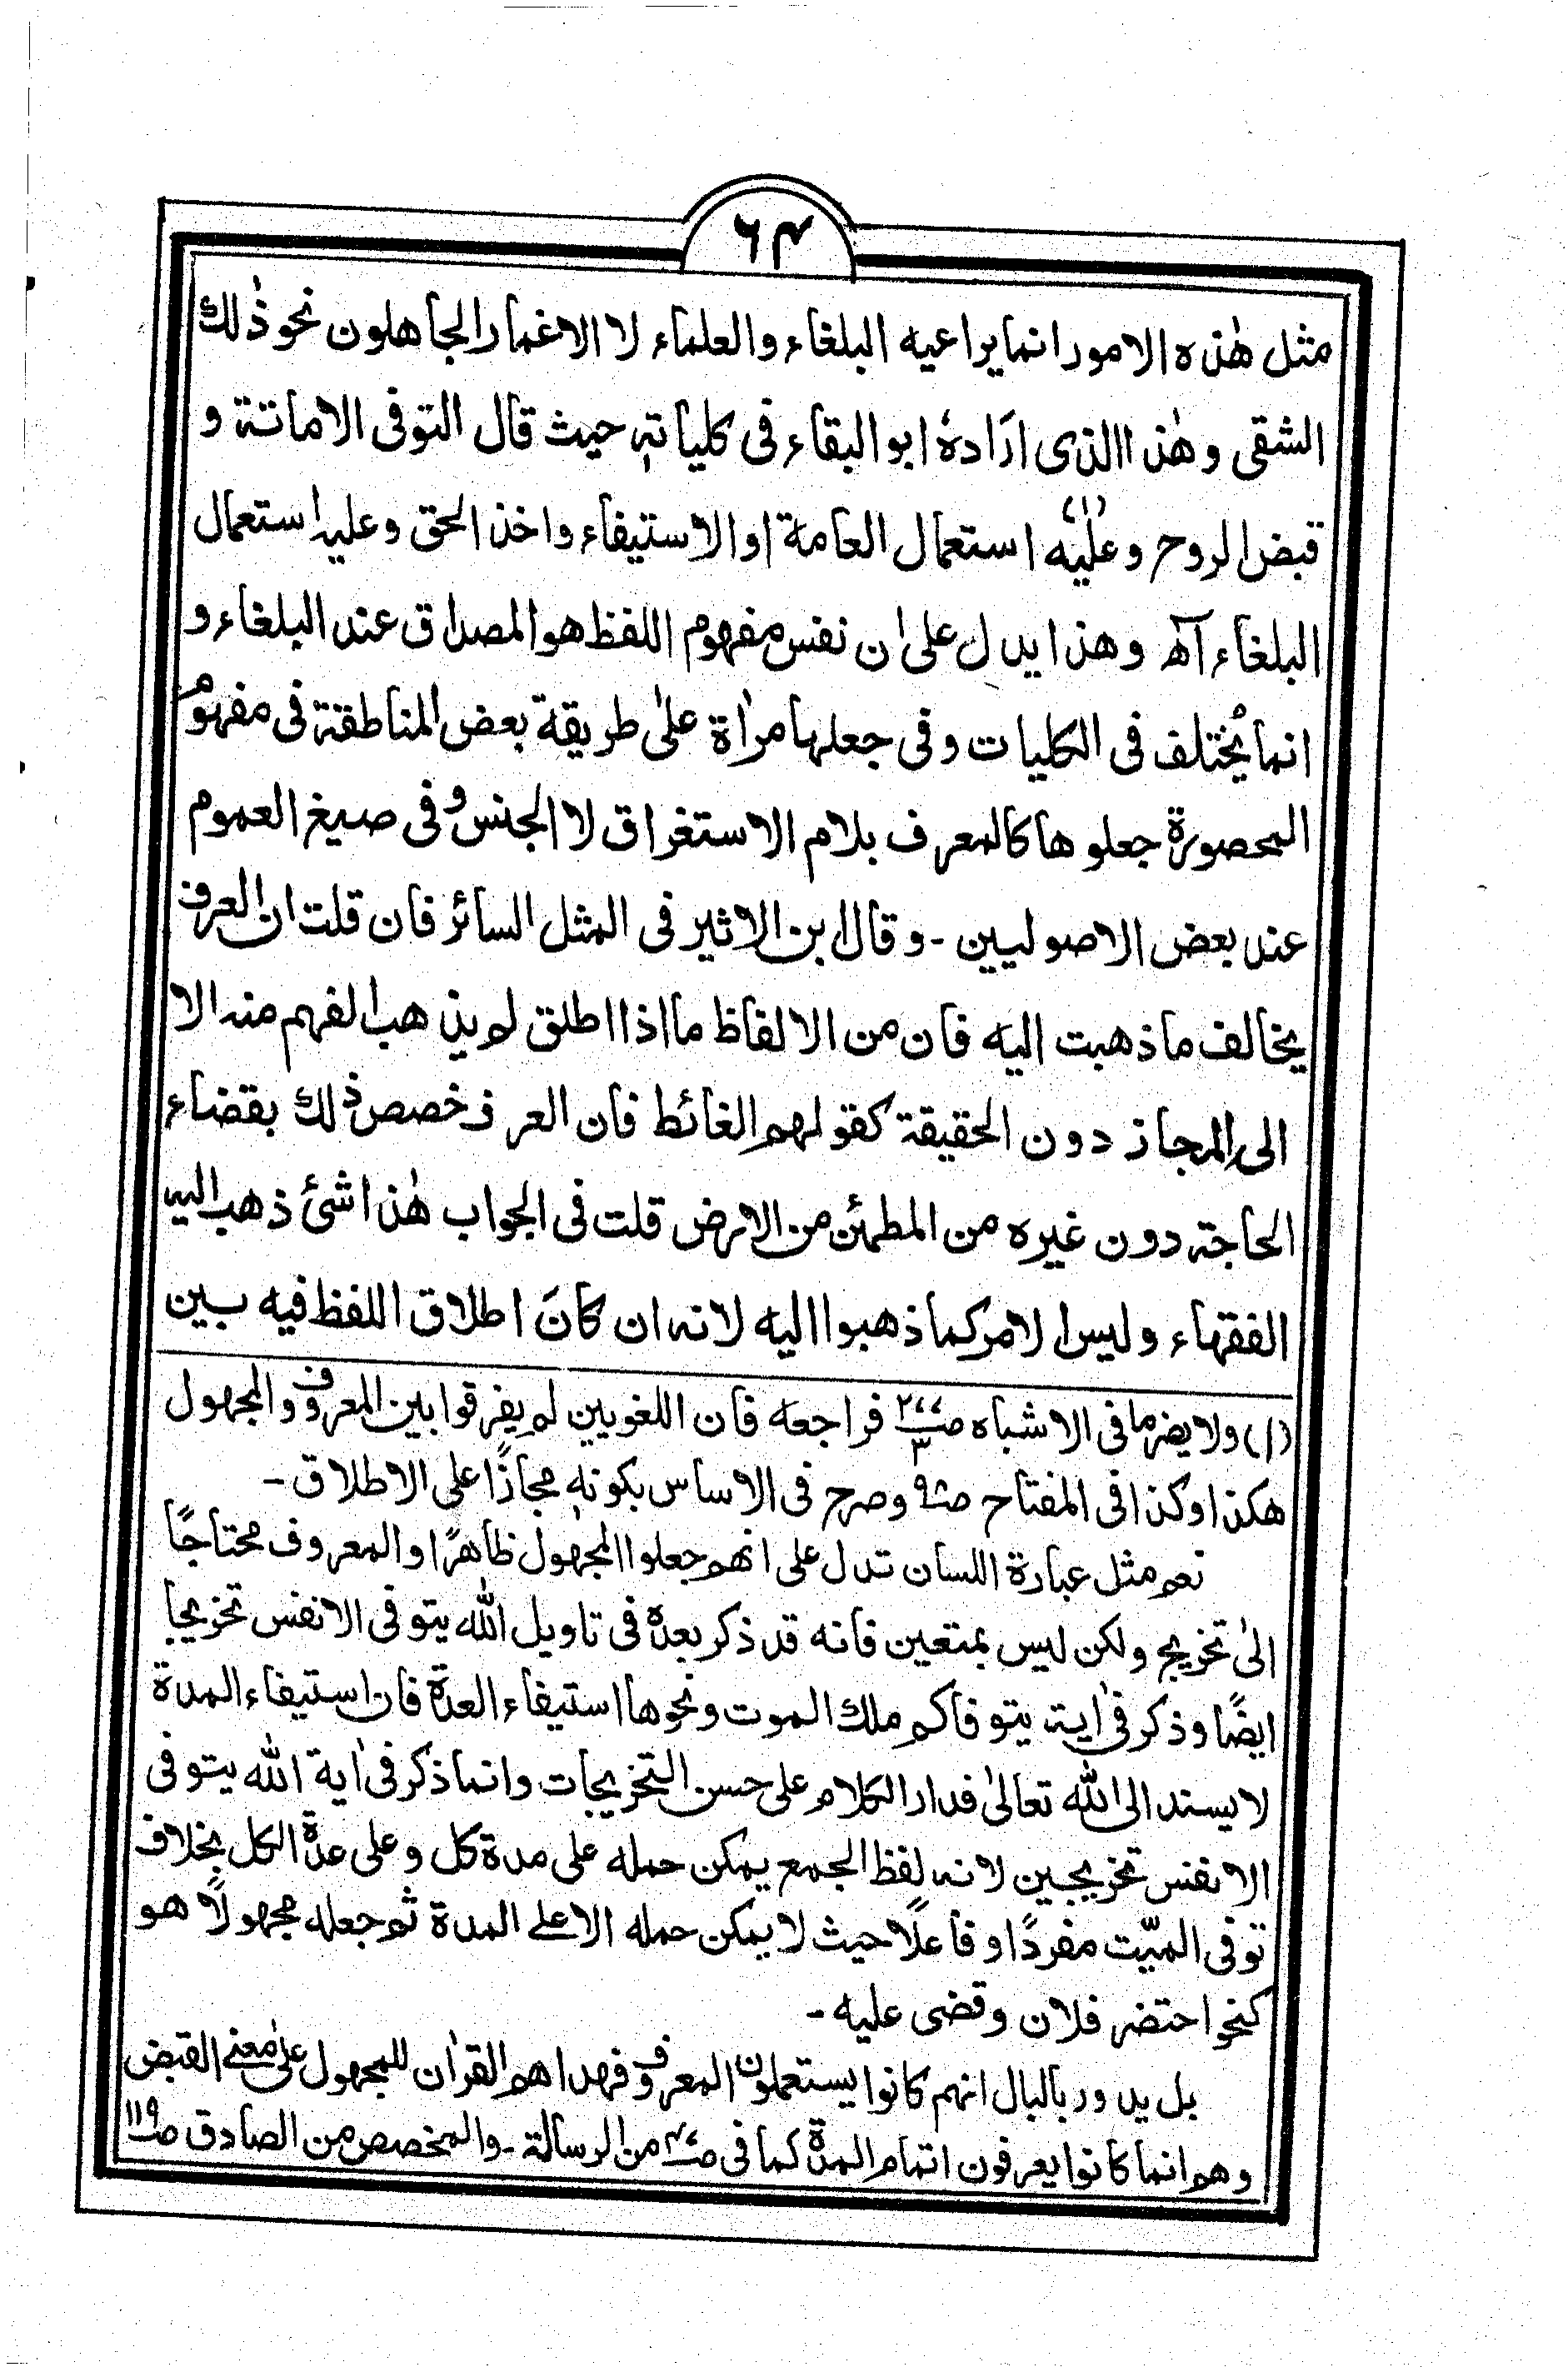 ٦٤
مثل هٰذه الامور انما يراعيه البلغاء والعلماء لا الاغمار الجاهلون نحو ذٰلك
الشقى وهٰذا الذى ارادهٗ ابو البقاء فى كلياتهٖ حيث قال التوفى الاماتة و
قبض الروح وعليٰه (۱) استعمال العامة او الاستيفاء واخذ الحق وعليه استعمال
البلغاء آھ وهذا يدل على ان نفس مفهوم اللفظ هو المصداق عند البلغاء و
انما يُختلف فى الكليات وفى جعلها مراٰة علىٰ طريقة بعض المناطقة فى مفهوم
المحصورة جعلوها كالمعرف بلام الاستغراق لا الجنس وفى صيغ العموم
عند بعض الاصوليين - وقال ابن الاثير فى المثل السائر فان قلت ان العرف
يخالف ما ذهبت اليه فان من الالفاظ ما اذا اطلق لم يذهب الفهم منه الا
الى المجاز دون الحقيقة كقولهم الغائط فان العرف خصص ذٰلك بقضاء
الحاجة دون غيره من المطمئن من الارض قلت فى الجواب هٰذا شئ ذهب اليه
الفقهاء وليس الامر كما ذهبوا اليه لانه ان كانَ اطلاق اللفظ فيه بين
(۱) ولا يضر ما فى الاشباه فراجعه فان اللغويين لم يفرقوا بين المعروف والمجهول
هكذا وكذا فى المفتاح وصرح فى الاساس بكونهٖ مجازًا على الاطلاق -
نعم مثل عبارة اللسان تدل على انهم جعلوا المجهول ظاهرًا والمعروف محتاجًا
الىٰ تخريج ولكن ليس بمتعين فانه قد ذكر بعدهٗ فى تاويل الله يتوفى الانفس تخريجا
ايضًا وذكر فى اٰية يتوفاكم ملك الموت ونحوها استيفاء العدة فان استيفاء المدة
لا يسند الى الله تعالىٰ فدار الكلام على حسن التخريجات وانما ذكر فى اٰية الله يتوفى
الانفس تخريجين لانه لفظ الجمع يمكن حمله على مدة كل وعلى عدة الكل بخلاف
توفى الميّت مفردًا وفاعلًا حيث لا يمكن حمله الا على المدة ثم جعله مجهولًا هو
كنحو احتضر فلان وقضى عليه -
بل يدور بالبال انهم كانوا يستعملون المعروف فهداهم القراٰن للمجهول علىٰ معنے القبض
وهم انما كانوا يعرفون اتمام المدة كما فى من الرسالة - والمخصص من الصادق صـ۱۱۹